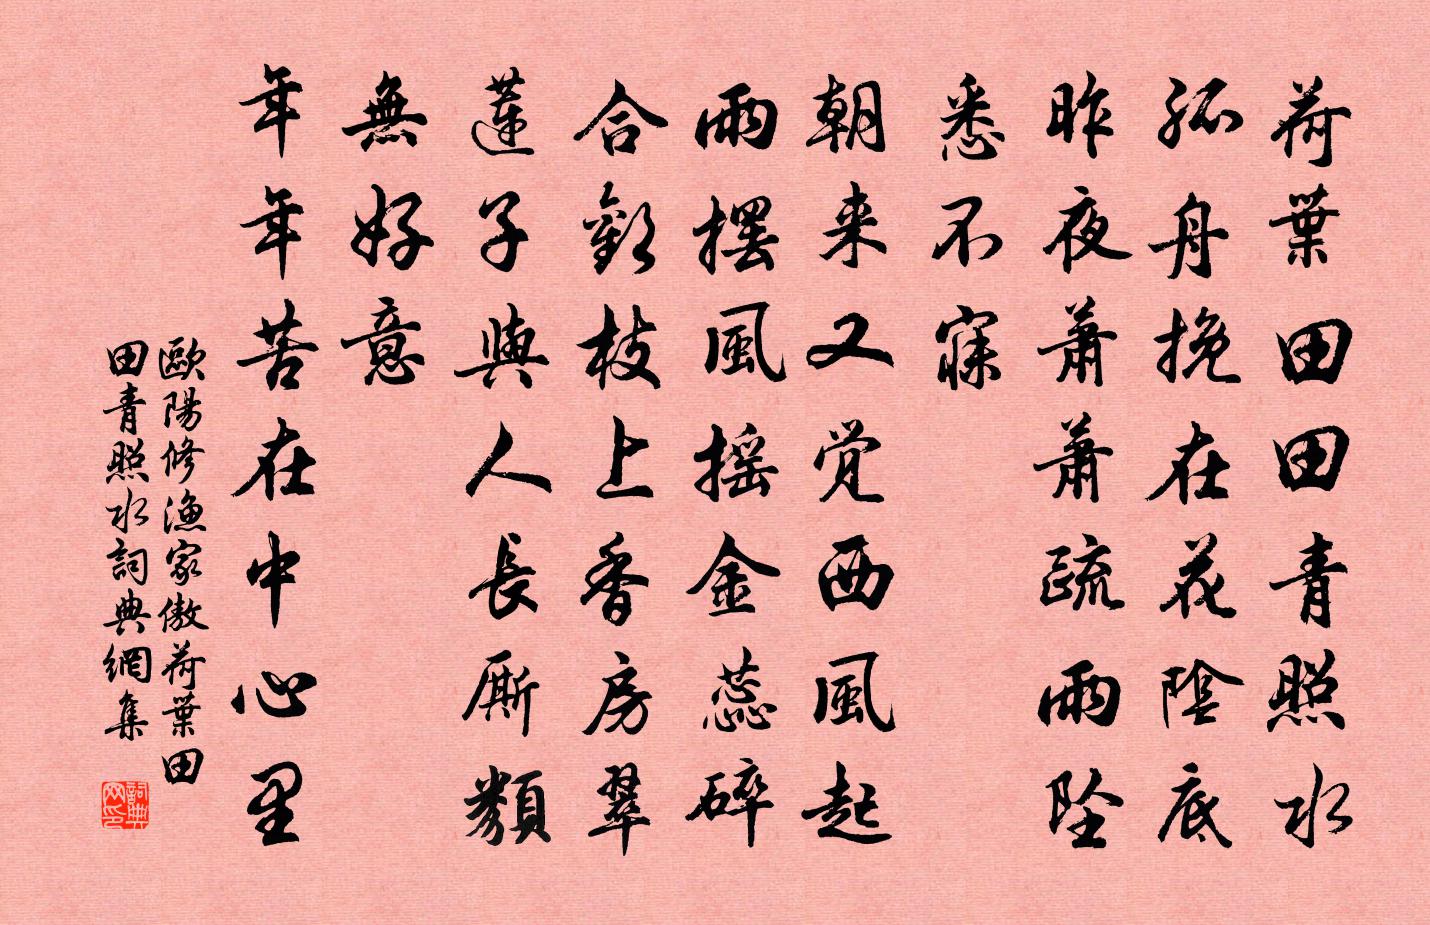 荷葉田田青照水
孤舟挽在花陰底
昨夜蕭蕭疏雨坠
悉不寐
朝来又觉西風起
雨擺風摇金蕊碎
合歡枝上香房翠
莲子與人長厮類
無好意
年年苦在中心里
歐陽修漁家傲荷葉田
田青照水詞典網集
詞典网印